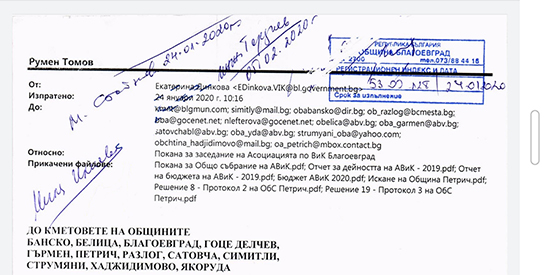 РЕПУБЛИКА БЪЛГАРИЯ
ОБЩИНА БЛАГОЕВГРАД
тел.073/88 44 15
РЕГИСТРАЦИОНЕН ИНДЕКС И ДАТА
24.01.2020
Срок за изпълнение
24.01.2020г.
05.02.2020г.
Румен Томов
От: Екатерина Динкова <EDinkova.VIK@bl.government.bg>
Изпратено: 24 януари 2020 г. 10:16
До: @blgmun.com; similty@mail.bg; obabansko@dir.bg; ob_razlog@bcmesta.bg;
oba@gocenet.net; nlefterova@gocenet.net; obelica@abv.bg; oba_garmen@abv.bg;
satovchabl@abv.bg; oba_yda@abv.bg; strumyani_oba@yahoo.com;
obchtina_hadjidimovo@mail.bg; oa_petrich@mbox.contact.bg
Относно: Покана за заседание на Асоциацията по ВиК Благоевград
Прикачени файлове: Покана за Общо събрание на АВиК - 2019.pdf; Отчет за дейността на АВиК - 2019.pdf; Отчет
на бюджета на АВиК - 2019.pdf; Бюджет АВиК 2020.pdf; Искане на Община Петрич.pdf;
Решение 8 - Протокол 2 на ОбС Петрич.pdf; Решение 19 - Протокол 3 на ОбС
Петрич.pdf
ДО КМЕТОВЕТЕ НА ОБЩИНИТЕ
БАНСКО, БЕЛИЦА, БЛАГОЕВГРАД, ГОЦЕ ДЕЛЧЕВ,
ГЪРМЕН, ПЕТРИЧ, РАЗЛОГ, САТОВЧА, СИМИТЛИ,
СТРУМЯНИ, ХАДЖИДИМОВО, ЯКОРУДА